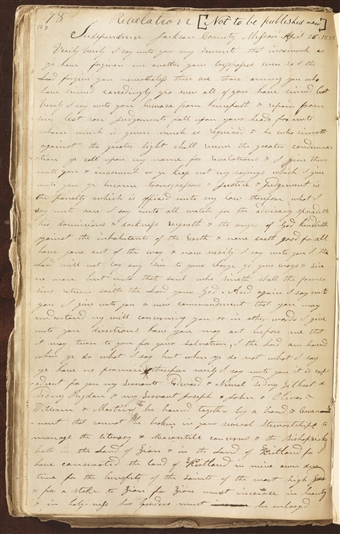 128 Revelation [Not to be published now]
Independence Jackson County Missouri April 26 1832
Verily Verily I say unto you my Servants that inasmuch as
ye have forgiven one another your trespasses even so I the
Lord forgive you nevertheless there are those among you who
have sinned exceedingly yea even all of you have sinned but
Verily I say unto you beware from henceforth & refrain from
sin lest sore judgements fall upon your heads for unto
whom much is given much is required & he who sinneth
against the greater light shall receive the greater condemnation
ye call upon my name for revelations & I give them
unto you & inasmuch as ye keep not my sayings which I give
unto you ye become transgressors & Justice & judgement is
the penalty which is affixed unto my law therefore what I
say unto one I say unto all watch for the adversary spreadeth
his dominions & darkness reigneth & the anger of God kindleth
against the inhabitants of the Earth & none doeth good for all
have gone out of the way & now verily I say unto you I the
Lord will not lay any sin to your charge go your ways & sin
no more but unto that soul who sinneth shall the former
sins return saith the Lord your God. And again I say unto
you I give unto you a new commandment that you may
understand my will concerning you or in other words I give
unto you directions how you may act before me that
it may turn to you for your salvation I the Lord am bound
when ye do what I say but when ye do not what I say
ye have no promise therefore verily I say unto you it is expedient
for you my Servants Edward & Newel Sidney Gilbert &
Sidney Rigdon & my Servant Joseph & John & Oliver &
William & Martin to be bound together by a bond & Covenant
that cannot be broken in your several Stewardships to
manage the literary & Mercantile concerns & the Bishopricks
both in the land of Zion & in the Land of Kirtland for I
have consecrated the land of Kirtland in mine own due
time for the benefit of the saints of the most high
& for a stake to Zion for Zion must increase in beauty
& in holyness her borders must be enlarged